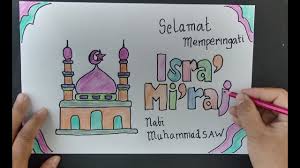 Selamat
Memperingati
Isra'
Mi'raj
Nabi
Muhammad SAW